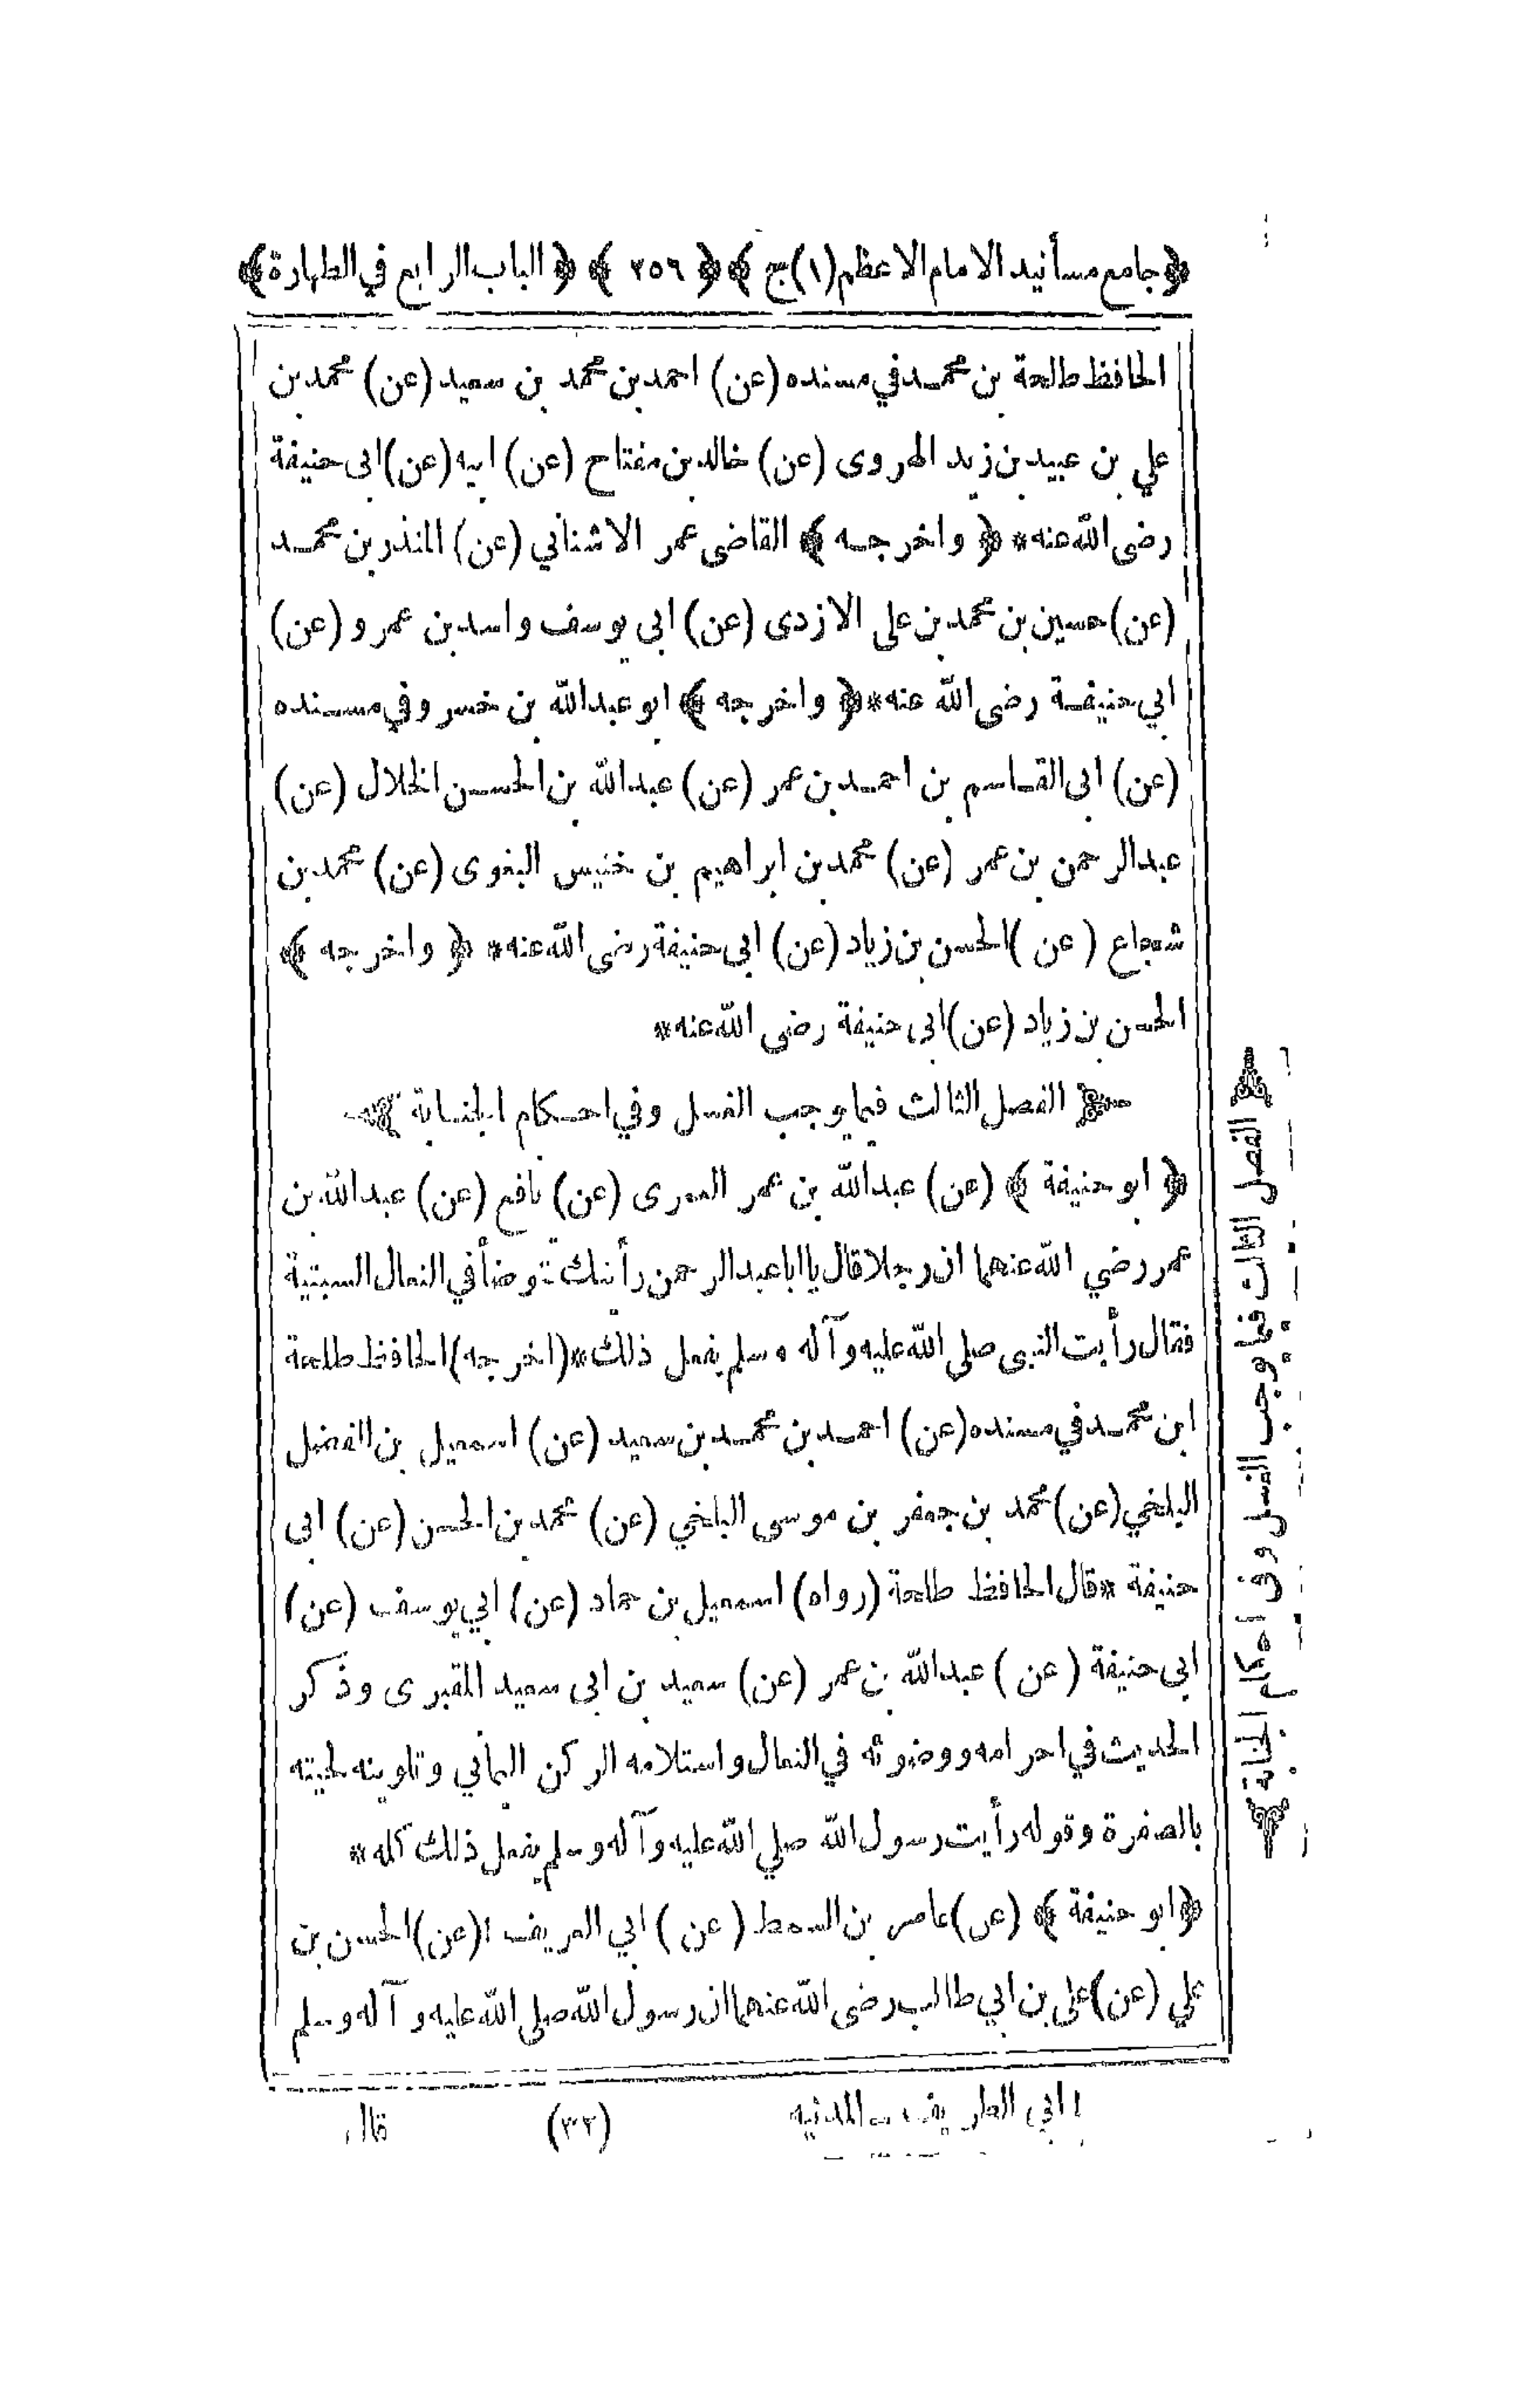 ﴿ جامع مسأنيد الامام الاعظم (١) ج ﴾ ﴿ ٢٥٦ ﴾ ﴿ الباب الرابع في الطهارة ﴾
الحافظ طلحة بن محمد في مسنده (عن) احمد بن محمد بن سعيد (عن) محمد بن
علي بن عبيد بن زيد الهروى (عن) خالد بن مفتاح (عن) ابيه (عن) ابى حنيفة
رضى الله عنه * ﴿ واخرجه ﴾ القاضى عمر الاشناني (عن) المنذر بن محمد
(عن) حسين بن محمد بن على الازدى (عن) ابى يوسف واسد بن عمرو (عن)
ابي حنيفة رضى الله عنه * ﴿ واخرجه ﴾ ابو عبدالله بن خسرو في مسنده
(عن) ابى القاسم بن احمد بن عمر (عن) عبدالله بن الحسن الخلال (عن)
عبدالرحمن بن عمر (عن) محمد بن ابراهيم بن خنيس البغوى (عن) محمد بن
شجاع (عن) الحسن بن زياد (عن) ابى حنيفة رضى الله عنه * ﴿ واخرجه ﴾
الحسن بن زياد (عن) ابى حنيفة رضى الله عنه *
الفصل الثالث فيما يوجب الغسل وفي احكام الجنابة
﴿ ابو حنيفة ﴾ (عن) عبدالله بن عمر العمرى (عن) نافع (عن) عبدالله بن
عمر رضي الله عنهما ان رجلا قال يا ابا عبدالرحمن رأيتك توضأ في النعال السبتية
فقال رأيت النبى صلى الله عليه وآله وسلم يفعل ذلك * (اخرجه) الحافظ طلحة
ابن محمد في مسنده (عن) احمد بن محمد بن سعيد (عن) اسمعيل بن الفضل
البلخي (عن) محمد بن جعفر بن موسى البلخي (عن) محمد بن الحسن (عن) ابى
حنيفة * قال الحافظ طلحة (رواه) اسمعيل بن حماد (عن) ابي يوسف (عن)
ابى حنيفة (عن) عبدالله بن عمر (عن) سعيد بن ابى سعيد المقبرى وذكر
الحديث في احرامه ووضوئه في النعال واستلامه الركن اليماني وتلوينه لحيته
بالصفرة وقوله رأيت رسول الله صلي الله عليه وآله وسلم يفعل ذلك كله *
﴿ ابو حنيفة ﴾ (عن) عامر بن السمط (عن) ابي العريف ١ (عن) الحسن بن
علي (عن) على بن ابي طالب رضى الله عنهما ان رسول الله صلى الله عليه وآله وسلم
١ ابي الطريف المدنيه
(٣٢)
قال
الفصل الثالث فيما يوجب الغسل وفى احكام الجنابة